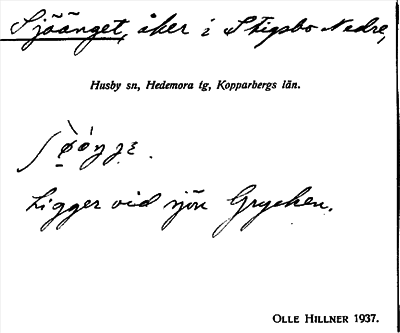 Sjöänget, åker i Stigsbo Nedre,
Husby sn, Hedemora tg, Kopparbergs län.
Ligger vid sjön Grycken.
OLLE HILLNER 1937.